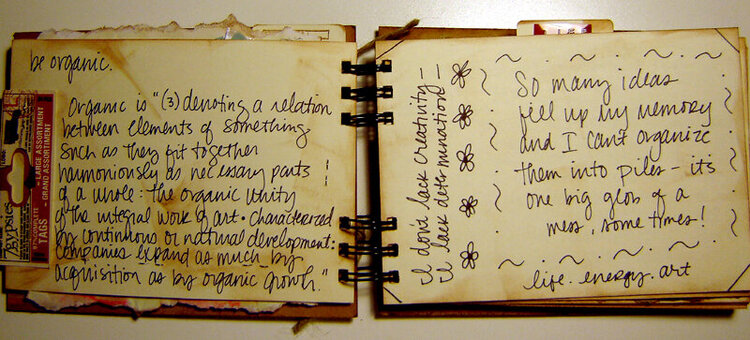 be organic.
Organic is "(3) denoting a relation
between elements of something
such as they fit together
harmoniously as necessary parts
of a whole: the organic unity
of the integral work of art • characterized
by continuous or natural development:
companies expand as much by
acquisition as by organic growth."
7gypsies
TAGS
- LARGE ASSORTMENT
- GRAND ASSORTMENT
I don't lack creativity -
I lack determination -
So many ideas
fill up my memory
and I can't organize
them into piles - it's
one big glob of a
mess, some times!
life . energy . art